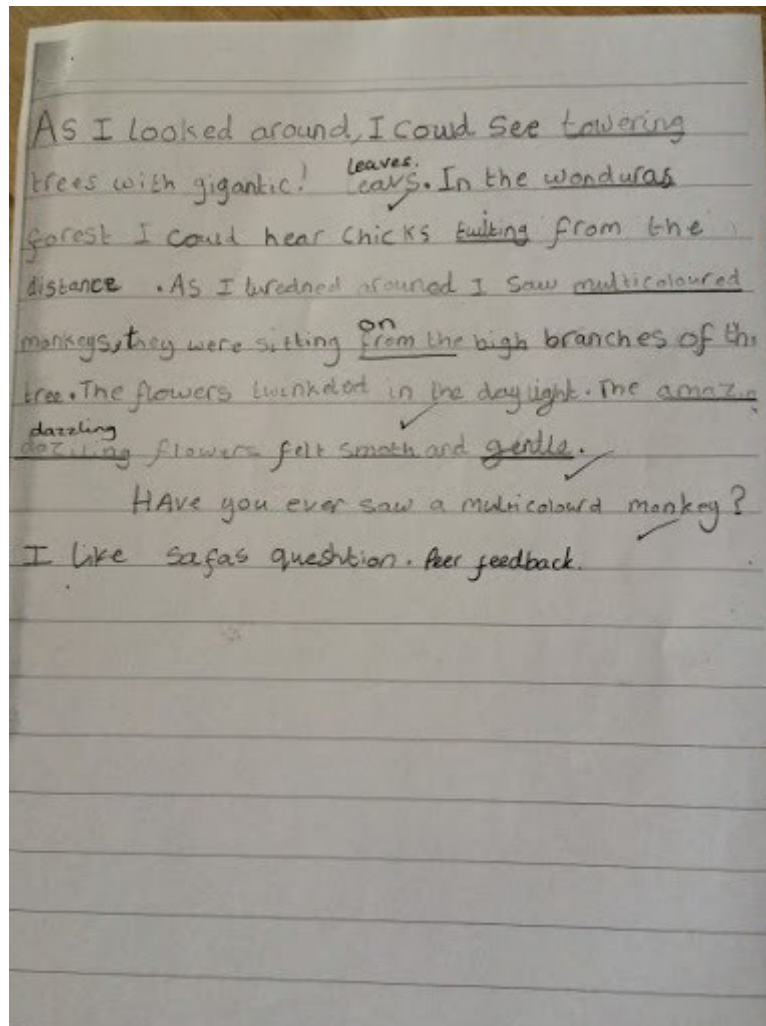 As I looked around, I could see towering
leaves.
trees with gigantic! leavs. In the wonduras
forest I could hear chicks twiting from the
distance. As I turedned arouned I saw multicoloured
on
monkeys, they were sitting from the high branches of the
tree. The flowers twinkeled in the daylight. The amazing
dazzling
daziling flowers felt smoth and gentle.
HAve you ever saw a multicolourd monkey?
I like safas queshtion. Peer feedback.